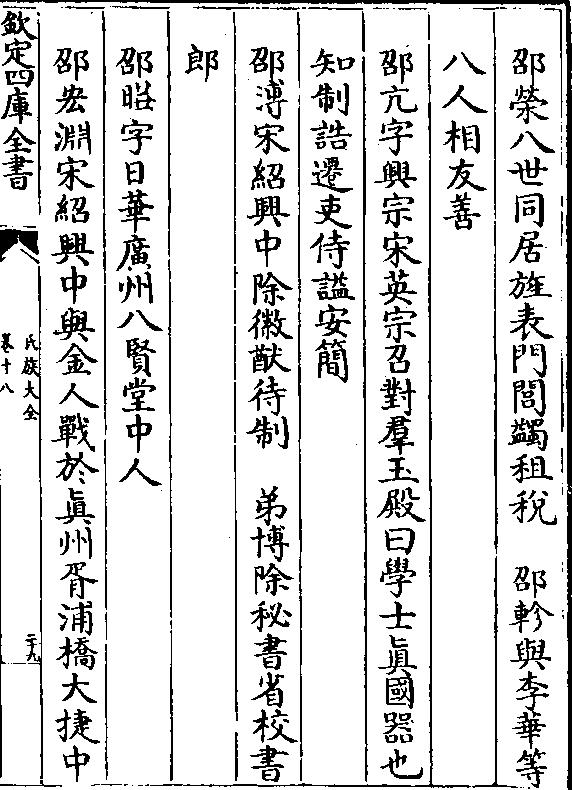 邵榮八世同居旌表門閭蠲租稅　邵軫與李華等
八人相友善
邵亢字興宗宋英宗召對羣玉殿曰學士眞國器也
知制誥遷吏侍謚安簡
邵溥宋紹興中除徽猷待制　弟博除秘書省校書
郎
邵昭字日華廣州八賢堂中人
邵宏淵宋紹興中與金人戰於眞州胥浦橋大捷中
欽定四庫全書
氏族大全
卷十八
二十九